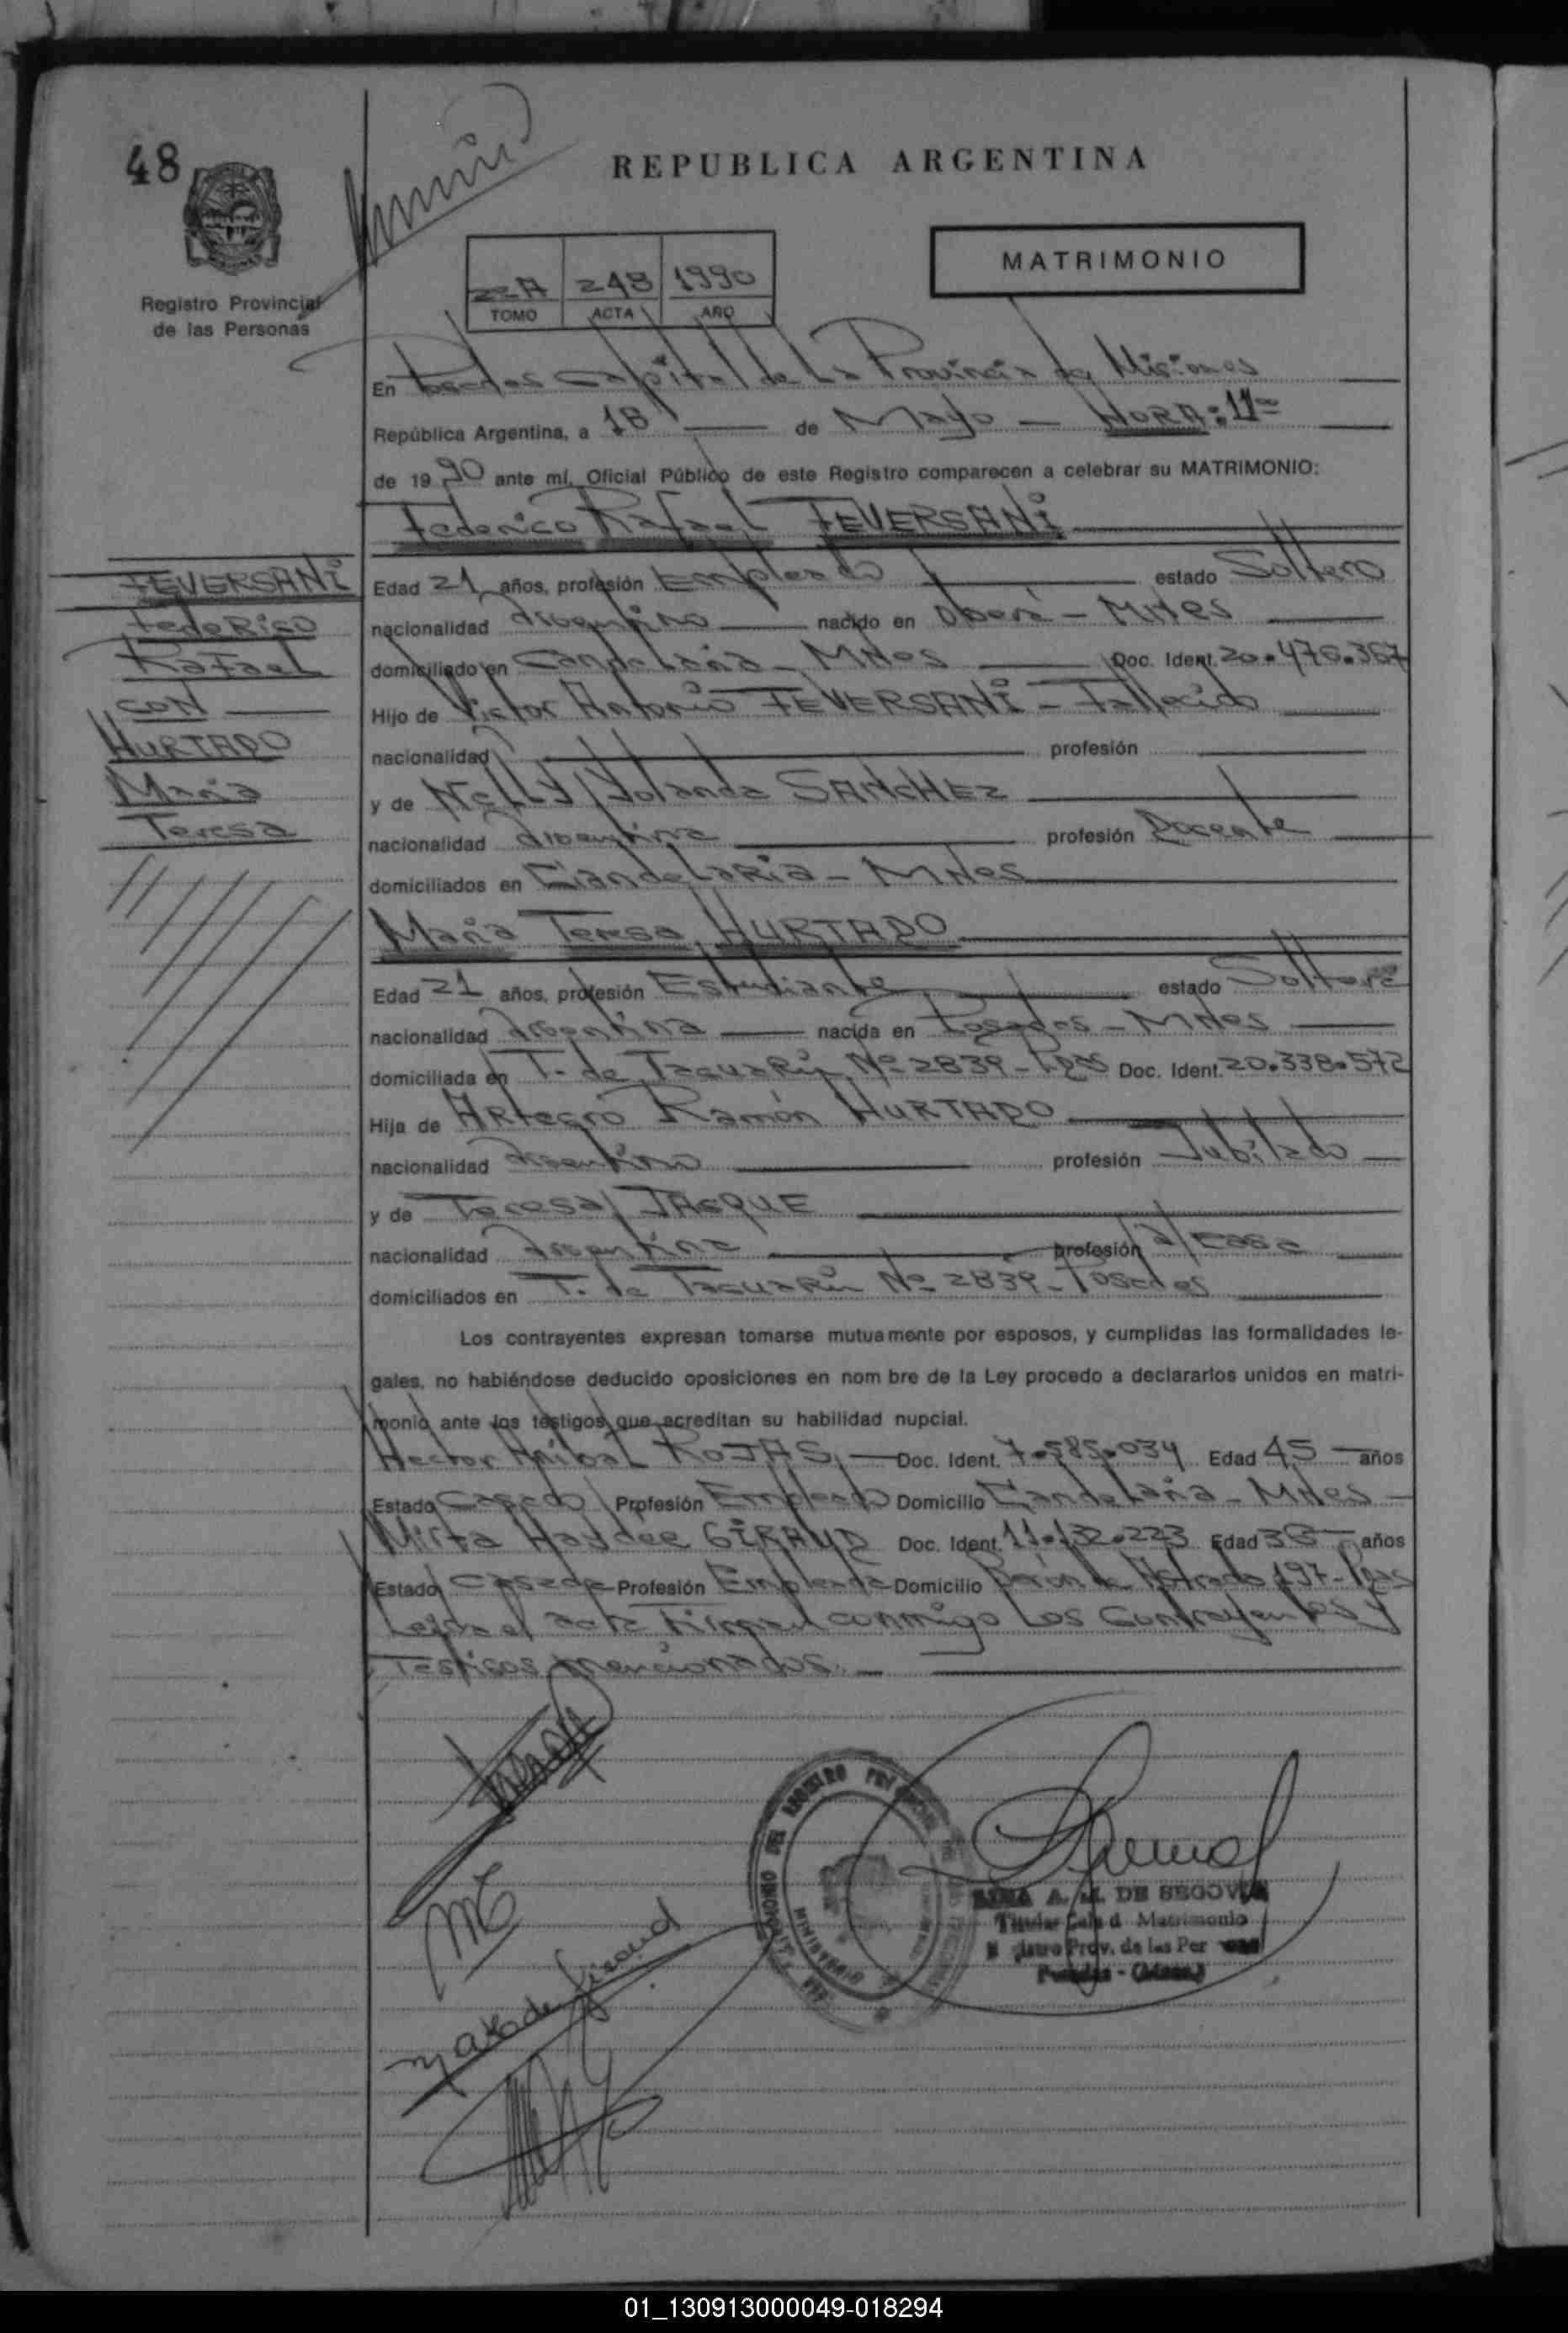 48
REPUBLICA ARGENTINA
MATRIMONIO
Registro Provincial
de las Personas
22A 248 1990
TOMO ACTA AÑO
En Posadas Capital de La Provincia de Misiones
República Argentina, a 18 de Mayo - HORA: 11
de 1990 ante mí, Oficial Público de este Registro comparecen a celebrar su MATRIMONIO:
Federico Rafael FEVERSANI
FEVERSANI
Federico
Rafael
CON
HURTADO
Maria
Teresa
Edad 21 años, profesión Empleado estado Soltero
nacionalidad Argentino nacido en Oberá - Mnes
domiciliado en Candelaria - Mnes Doc. Ident. 20.476.367
Hijo de Victor Antonio FEVERSANI - Fallecido
nacionalidad profesión
y de Nelly Yolanda SANCHEZ
nacionalidad Argentina profesión Docente
domiciliados en Candelaria - Mnes
Maria Teresa HURTADO
Edad 21 años, profesión Estudiante estado Soltera
nacionalidad Argentina nacida en Posadas - Mnes
domiciliada en T. de Tacuarí Nº 2839 - Pdas Doc. Ident. 20.338.572
Hija de Ramón HURTADO
nacionalidad Argentino profesión Jubilado
y de Teresa JACQUE
nacionalidad Argentina profesión a/casa
domiciliados en T. de Tacuarí Nº 2839 - Posadas
Los contrayentes expresan tomarse mutuamente por esposos, y cumplidas las formalidades le-
gales, no habiéndose deducido oposiciones en nom bre de la Ley procedo a declararlos unidos en matri-
monio ante los testigos que acreditan su habilidad nupcial.
Hector Anibal ROJAS Doc. Ident. 7.585.034 Edad 45 años
Estado Casado Profesión Empleado Domicilio Candelaria - Mnes
Mirta Haydee GIRAUD Doc. Ident. Edad 36 años
Estado Casada Profesión Empleada Domicilio de Astrada 197 - Pdas
Leída el acta Firman conmigo Los Contrayentes y
Testigos mencionados.
A. M. DE SEGOVIA
Titular Sala d Matrimonio
Prov. de las Per
Posadas - (Mnes.)
01_130913000049-018294